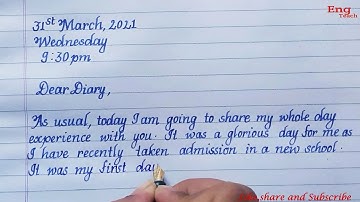 Eng
Teach
31st March, 2021
Wednesday
9:30 pm
Dear Diary,
As usual, today I am going to share my whole day
experience with you. It was a glorious day for me as
I have recently taken admission in a new school.
It was my first day
share and Subscribe